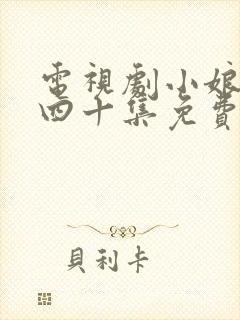 電視劇小娘
四十集免費
貝利卡